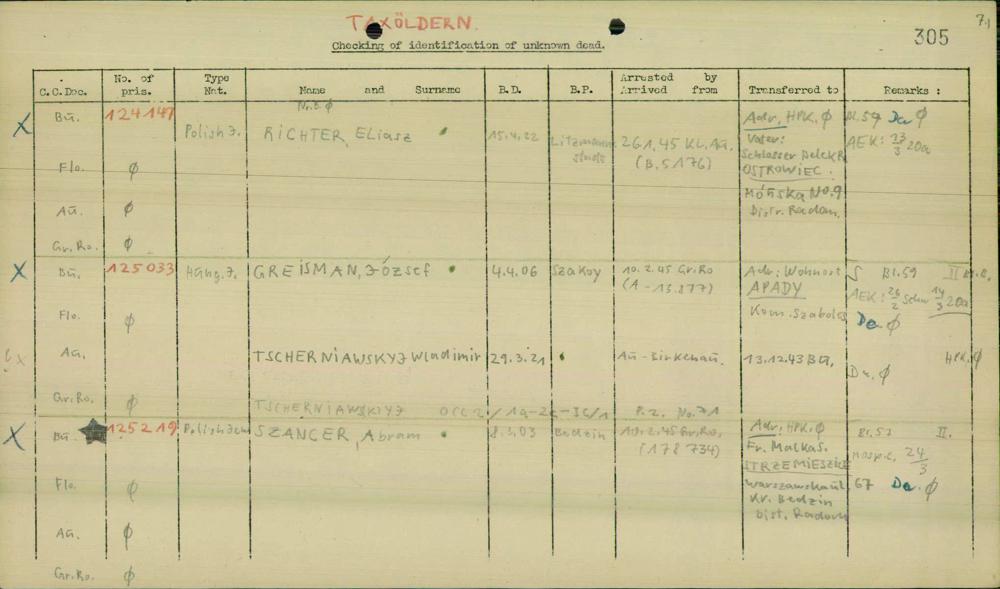 7.)
TAXÖLDERN
305
Checking of identification of unknown dead.
C.C.Doc. No. of pris. Type Nat. Name and Surname B.D. B.P. Arrested by Arrived from Transferred to Remarks :
Bu. 124147 Polish J. Nr.B.Ø RICHTER, Eliasz 15.4.22 Litzmannstadt 26.1.45 KL.Au. (B.5176) Adr, HPK. Ø Bl.59 Da Ø
Vater: AEK: 23/3 20a
Schlosser
Flo. Ø OSTROWIEC.
No.9
Au. Ø Distr. Radom.
Gr.Ro. Ø
Bu. 125033 Hung.J. GREISMAN, József 4.4.06 Szakoy 10.2.45 Gr.Ro (A-13.877) Adr: Wohnort S Bl.59 II
APADY AEK: 26/2 14/3 20a
Flo. Ø Kom. Szabolcs Da. Ø
Au. TSCHERNIAWSKYJ Wladimir 29.3.21 Au-Birkenau. 13.12.43 Bu. HPK. Ø
Da. Ø
Gr.Ro. Ø TSCHERNIAWSKIYJ OCC2/1a-2c-3c/1 P.2. No.71
Bu. 125219 Polish Jew SZANCER, Abram 8.3.03 Bedzin 10.2.45 Gr.Ro. (178734) Adr, HPK. Ø Bl.57 II.
Fr. Malka S. 24/3
STRZEMIESZICE
Flo. Ø 67 Da. Ø
Kr. Bedzin
Dist. Radom
Au. Ø
Gr.Ro. Ø